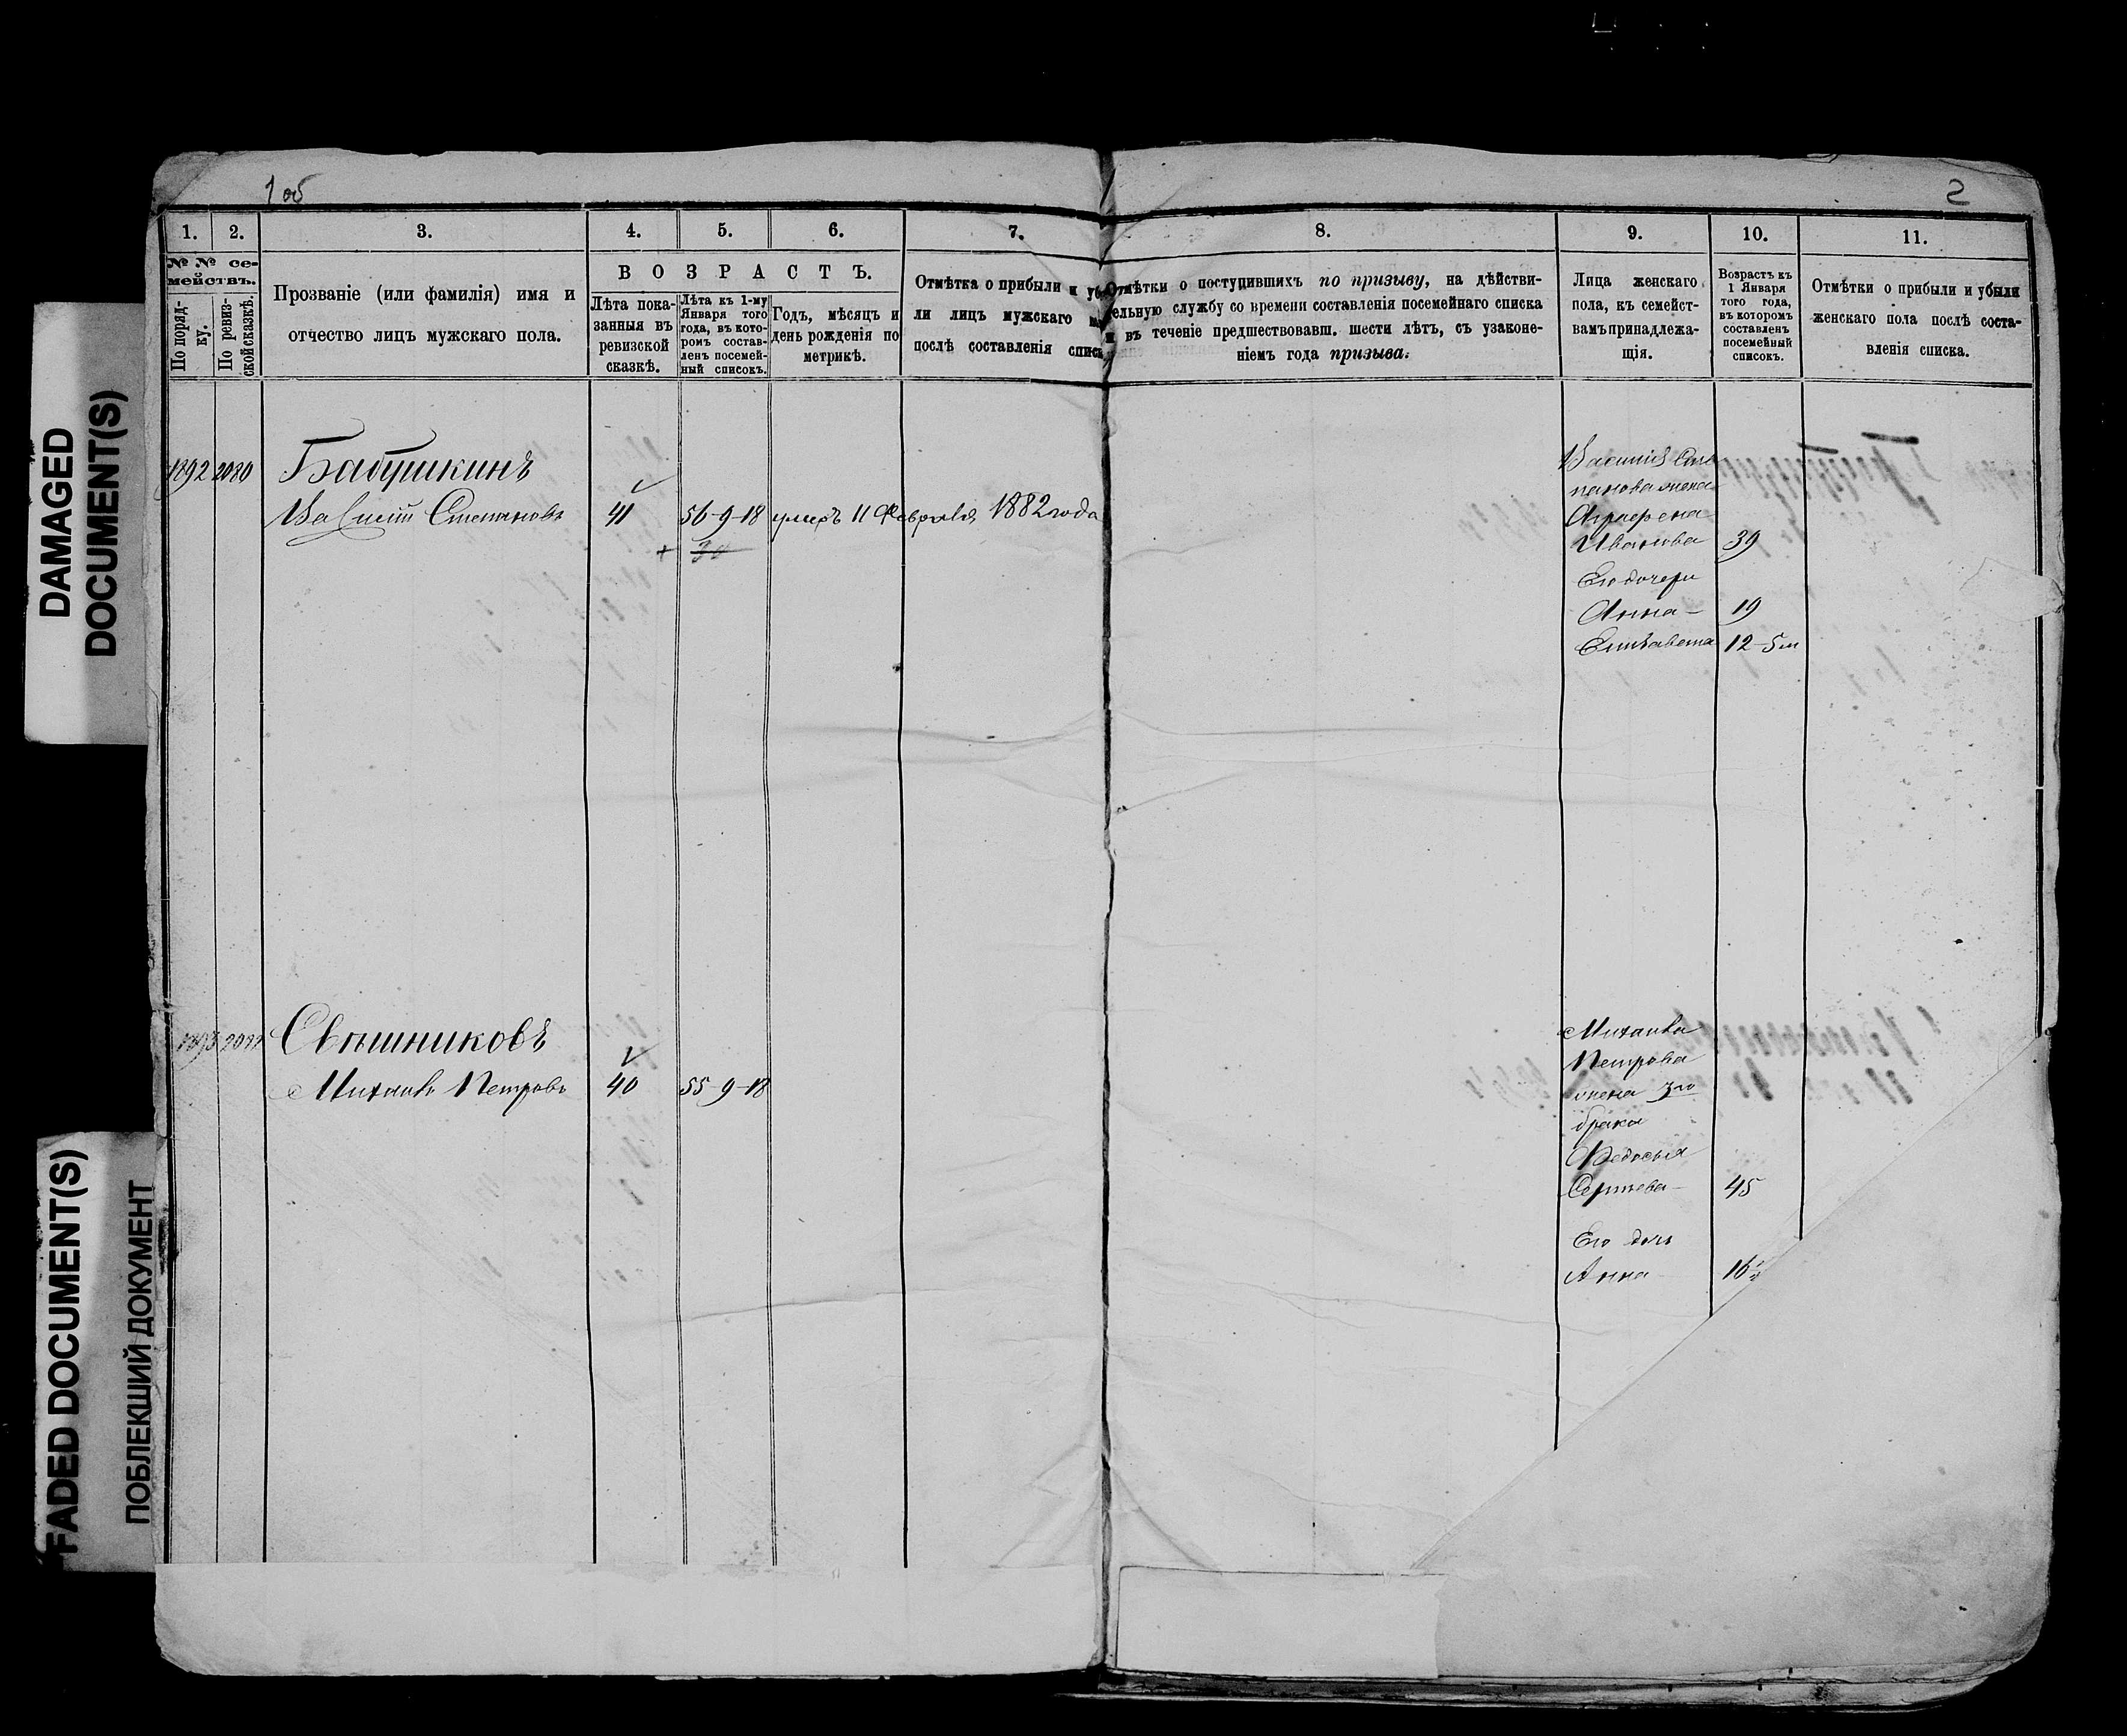 1 об
2
DAMAGED
DOCUMENT(S)
FADED DOCUMENT(S)
ПОБЛЕКШИЙ ДОКУМЕНТ
1.
2.
3.
4.
5.
6.
7.
8.
9.
10.
11.
№ № се-
мействъ.
По поряд-
ку.
По ревиз-
ской сказкѣ.
Прозваніе (или фамилія) имя и
отчество лицъ мужскаго пола.
ВОЗРАСТЪ.
Лѣта пока-
занныя въ
ревизской
сказкѣ.
Лѣта къ 1-му
Января того
года, въ кото-
ромъ состав-
ленъ посемей-
ный списокъ.
Годъ, мѣсяцъ и
день рожденія по
метрикѣ.
Отмѣтка о прибыли и уб
ли лицъ мужскаго
послѣ составленія списк
Отмѣтки о поступившихъ по призыву, на дѣйстви-
ельную службу со времени составленія посемейнаго списка
и въ теченіе предшествовавш. шести лѣтъ, съ узаконе-
ніемъ года призыва.
Лица женскаго
пола, къ семейст-
вамъ принадлежа-
щія.
Возрастъ къ
1 Января
того года,
въ которомъ
составленъ
посемейный
списокъ.
Отмѣтки о прибыли и убыли
женскаго пола послѣ соста-
вленія списка.
1892 2080 Бабушкинъ
Василій Степановъ 41 56-9-18 умеръ 11 Февраля 1882 года
+ 30
Василія Сте
панова жена
Аграфена
Иванова 39
Его дочери
Анна - 19
Елизавета 12-5 м
1893 Свѣшниковъ
Михаилъ Петровъ 40 55-9-18
Михаила
Петрова
жена 3го
брака
Федосья
Сергѣева - 45
Его дочь
Анна 16½